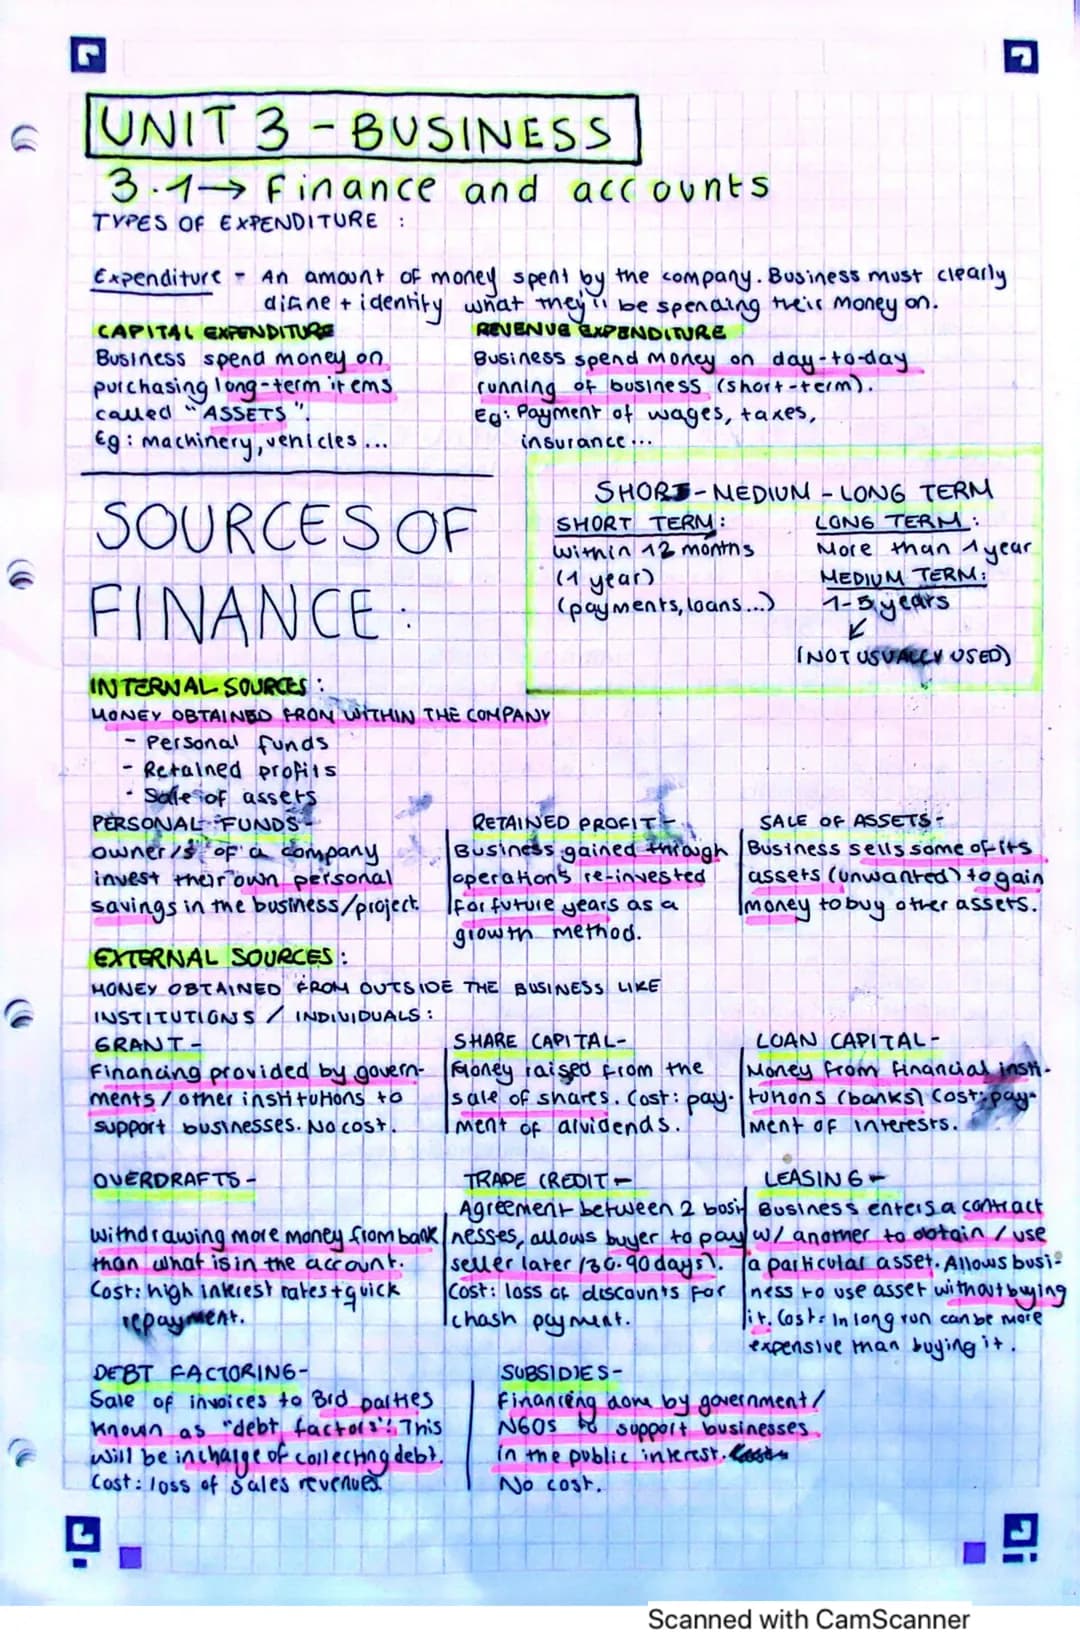 UNIT 3 - BUSINESS
3.1 → Finance and accounts
TYPES OF EXPENDITURE :
Expenditure - An amount of money spent by the company. Business must clearly
difine + identity what they'll be spending their money on.
CAPITAL EXPENDITURE
Business spend money on
purchasing long-term items
called "ASSETS".
Eg: machinery, vehicles...
REVENUE EXPENDITURE
Business spend money on day-to-day
running of business (short-term).
Eg: Payment of wages, taxes,
insurance...
SOURCES OF
FINANCE :
SHORT-MEDIUM-LONG TERM
SHORT TERM:
within 12 months
(1 year)
(payments, loans...)
LONG TERM:
More than 1 year
MEDIUM TERM:
1-5 years
↙
(NOT USUALLY USED)
INTERNAL SOURCES :
MONEY OBTAINED FROM WITHIN THE COMPANY
- Personal funds
- Retained profits
- Sale of assets
PERSONAL FUNDS-
owner/s of a company
invest their own personal
savings in the business/project
RETAINED PROFIT-
Business gained through
operation's re-invested
for future years as a
growth method.
SALE OF ASSETS-
Business sells some of its
assets (unwanted) to gain
money to buy other assets.
EXTERNAL SOURCES:
MONEY OBTAINED FROM OUTSIDE THE BUSINESS LIKE
INSTITUTIONS / INDIVIDUALS:
GRANT-
Financing provided by govern-
ments / other institutions to
support businesses. No cost.
SHARE CAPITAL-
Money raised from the
sale of shares. Cost: pay-
ment of dividends.
LOAN CAPITAL-
Money from financial insti-
tutions (banks) Cost: pay-
ment of interests.
OVERDRAFTS-
withdrawing more money from bank
than what is in the account.
Cost: high interest rates + quick
repayment.
TRADE CREDIT-
Agreement between 2 busi
nesses, allows buyer to pay
seller later (30-90 days).
Cost: loss of discounts for
chash payment.
LEASING-
Business enters a contract
w/ another to obtain / use
a particular asset. Allows busi-
ness to use asset without buying
it. Cost: In long run can be more
expensive than buying it.
DEBT FACTORING-
Sale of invoices to 3rd parties
known as "debt factors". This
will be in charge of collecting debt.
Cost: loss of sales revenues.
SUBSIDIES-
Financing done by government/
NGOS to support businesses
in the public interest.
No cost.
Scanned with CamScanner